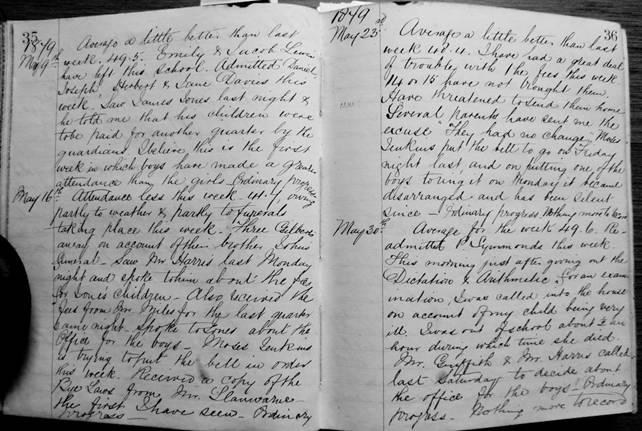 35
1879
May 9th
Average a little better than last
week. 49.5. Emily & Jacob Lewis
have left this school. Admitted Daniel,
Joseph, Herbert & Jane Davies this
week. Saw James Jones last night &
he told me that his children were
to be paid for another quarter by the
guardians. I believe this is the first
week in which boys have made a greater
attendance than the girls. Ordinary progress
May 16th
Attendance less this week. 44.7 owing
partly to weather & partly to funerals
taking place this week. Three Gilberts
away on account of their brother John's
funeral. Saw Mr Harris last Monday
night and spoke to him about the fees
for Jones' children. Also received the
fees from Mr. Miles for the last quarter
same night. Spoke to Jones about the
Office for the boys. Moses Jenkins
is trying to put the bell in order
this week. Received a copy of the
Bye Laws from Mr. Llanwarne
the first I have seen. Ordinary
progress
36
1879
May 23rd
Average a little better than last
week 48.4. I have had a great deal
of trouble with the fees this week
14 or 15 have not brought them.
Have threatened to send them home
Several parents have sent me the
excuse "They had no change". Moses
Jenkins put the bell to go on Friday
night last and on putting one of the
boys to ring it on Monday it became
disarranged and has been silent
since. Ordinary progress. Nothing more to
May 30th
Average for the week 49.6. Re-
admitted P. Symmonds this week.
This morning just after giving out the
Dictation & Arithmetic for an exam
ination, I was called into the house
on account of my child being very
ill. I was out of school about ½ an
hour during which time she died.
Mr. Griffith & Mr. Harris called
last Saturday to decide about
the office for the boys. Ordinary
progress. Nothing more to record